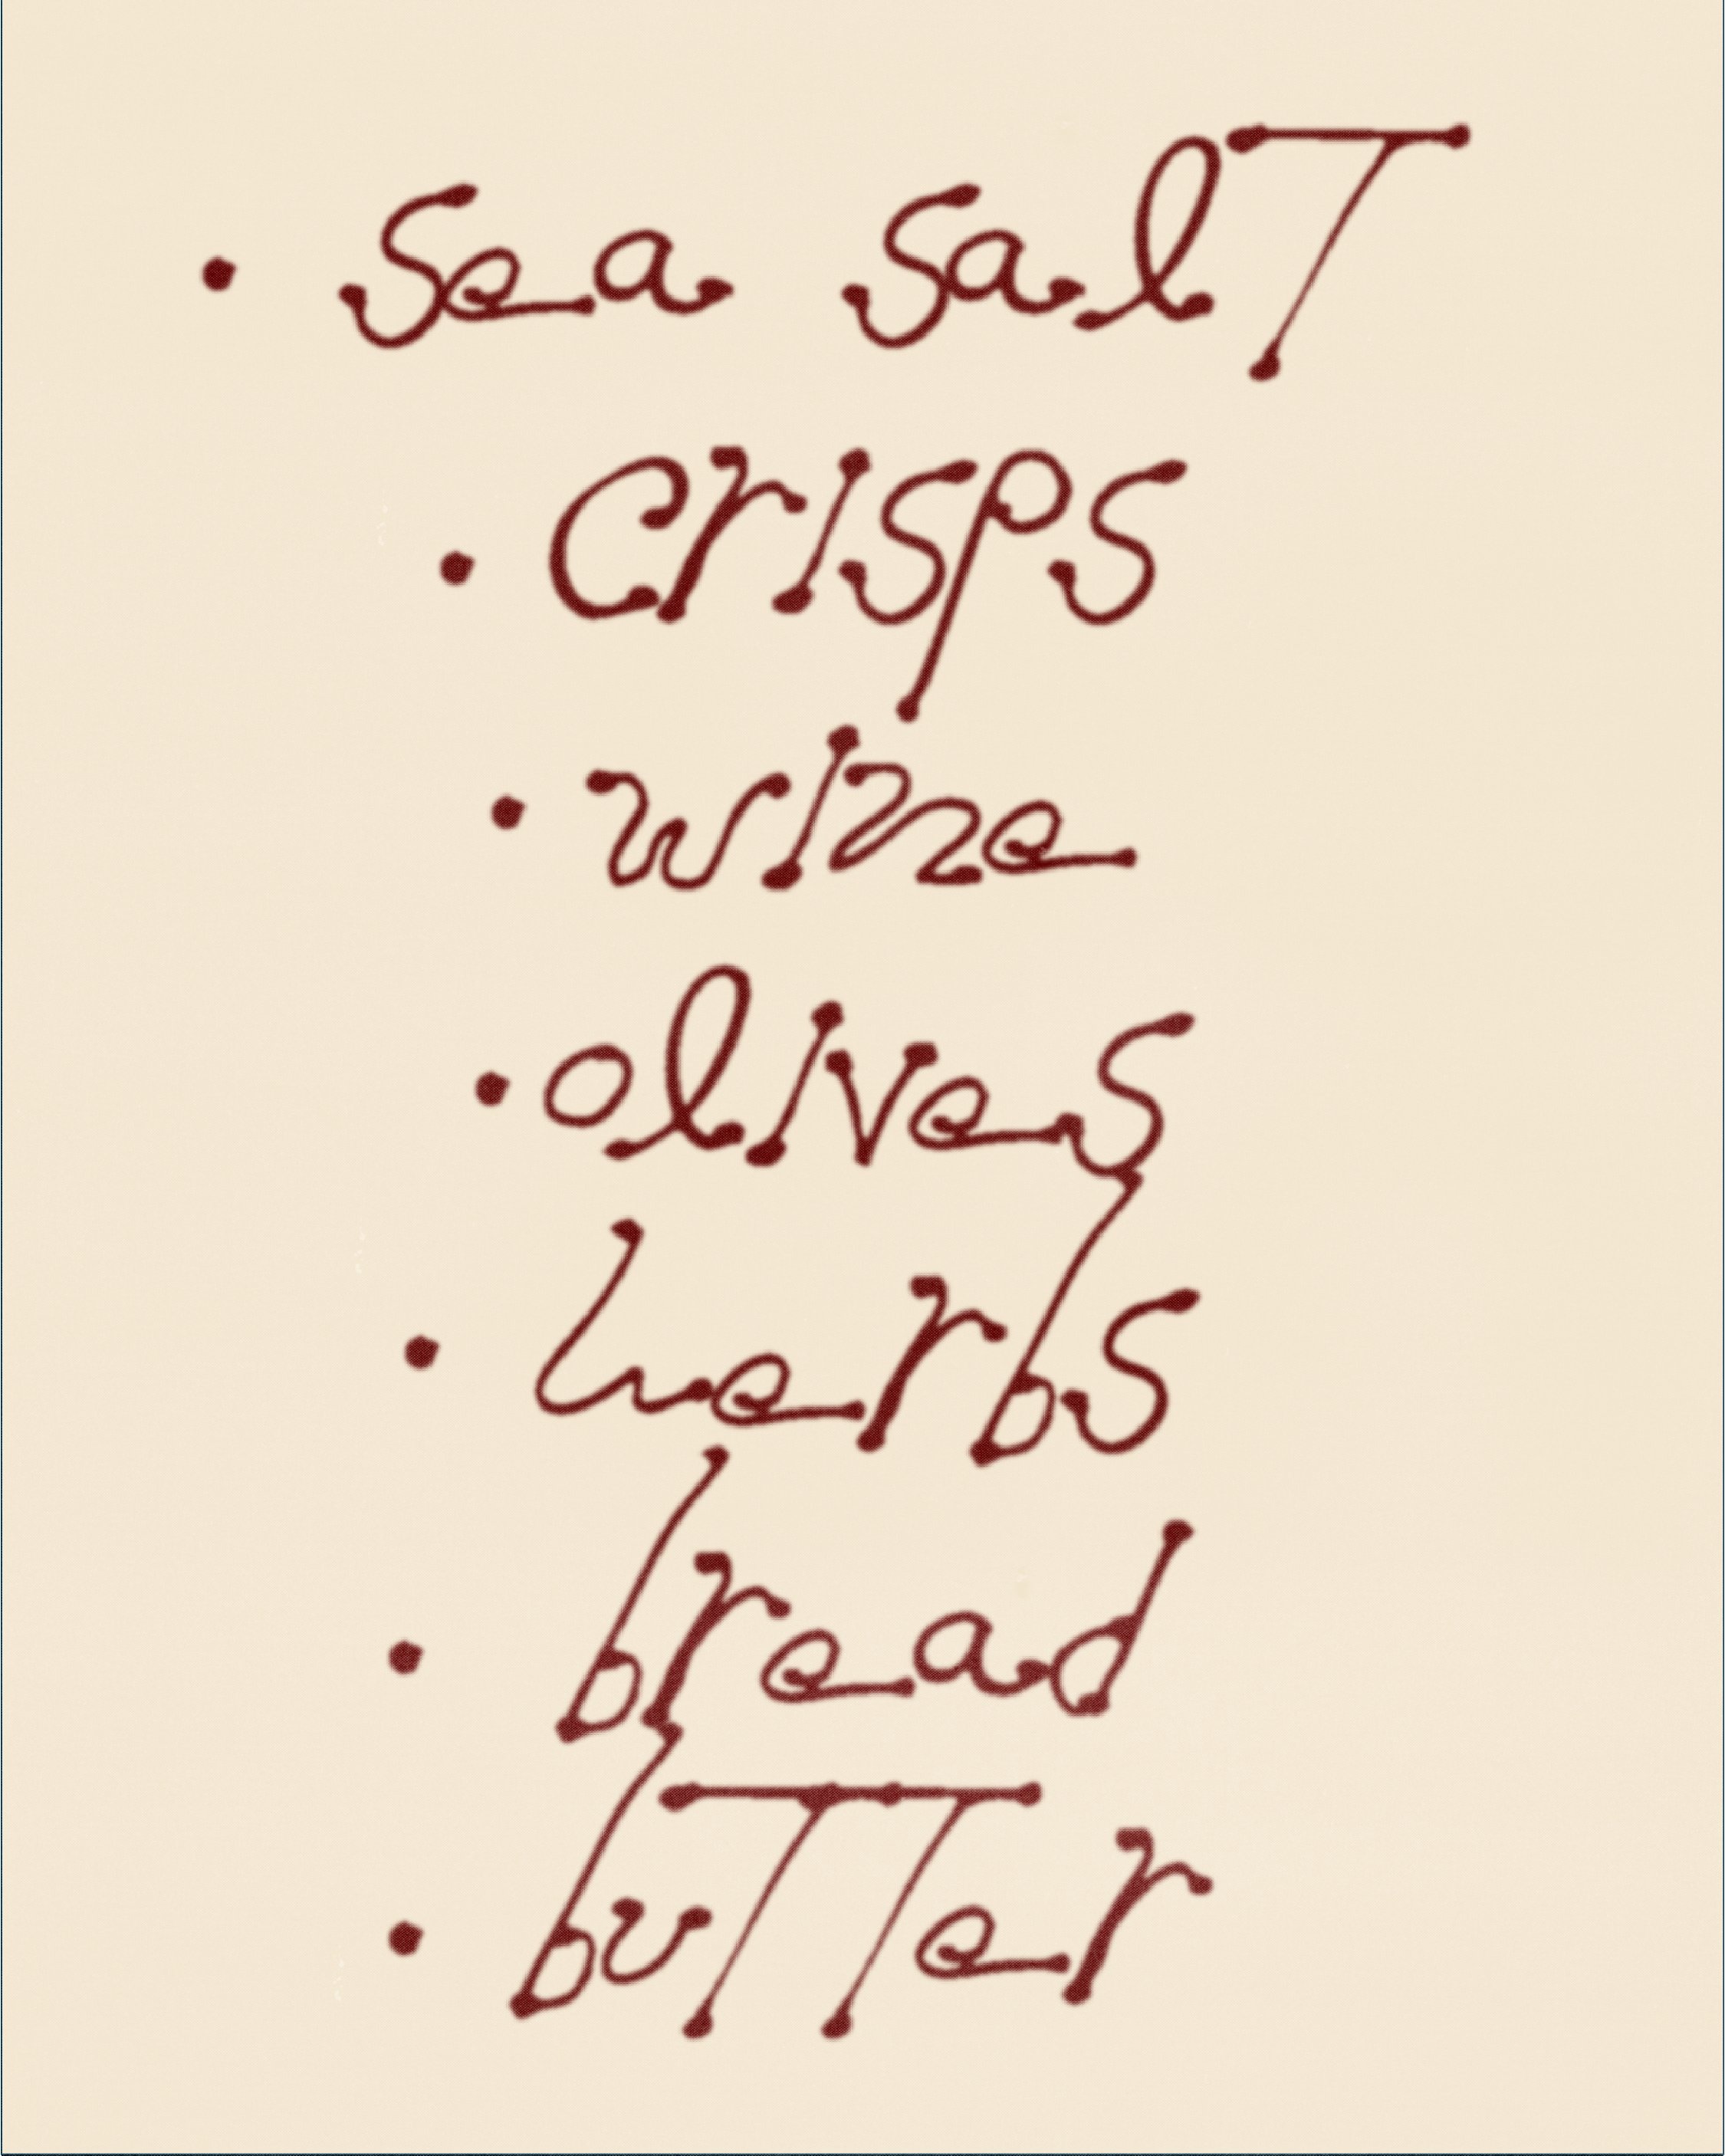 • sea salt
• crisps
• wine
• olives
• herbs
• bread
• butter